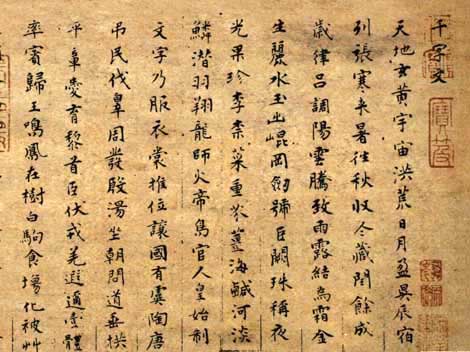 千字文
天地玄黃宇宙洪荒日月盈昃辰宿
列張寒来暑往秋收冬藏閏餘成
歲律呂調陽雲騰致雨露結為霜金
生麗水玉出崐岡劍號巨闕珠稱夜
光果珍李柰菜重芥薑海鹹河淡
鱗潛羽翔龍師火帝鳥官人皇始制
文字乃服衣裳推位讓國有虞陶唐
吊民伐辠周發殷湯坐朝問道垂拱
平章愛育黎首臣伏戎羌遐邇壹體
率賓歸王鳴鳳在樹白駒食場化被艸